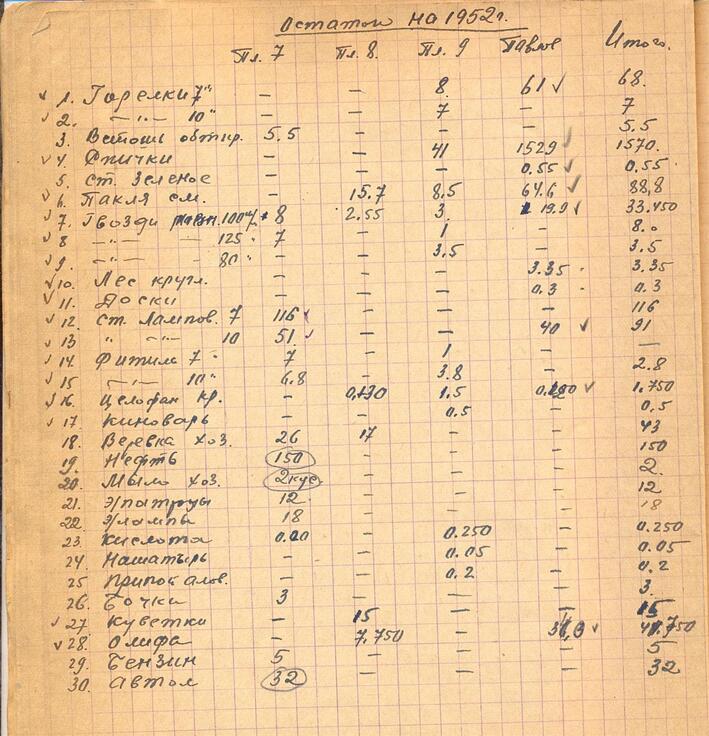 Остаток на 1952 г.
Пл. 7 Пл. 8. Пл. 9 Павлов Итого.
1. Горелки 7" — — 8 61 68.
2. —"— 10" — — 7 — 7
3. Ветошь обтир. 5.5 — — — 5.5
4. Спички — — 41 1529 1570.
5. Ст. Зеленое — — — 0.55 0.55
6. Пакля см. — 15.7 8.5 64.6 88,8
7. Гвозди 100 8 2.55 3 19.9 33.450
8 —"— 125" 7 — 1 — 8.0
9. —"— 80" — — 3.5 — 3.5
10. Лес кругл. — — — 3.35 3.35
11. Доски — — — 0.3 0.3
12 Ст. Лампов. 7 116 — — — 116
13 " —"— 10 51. — — 40 91
14. Фитили 7" 7 — 1 — —
15 —"— 10" 6.8 — 3.8 — 2.8
16. Целофан кр. — 0.130 1.5 1.750
17. Киноварь — — 0.5 — 0,5
18. Веревка хоз. 26 17 — — 43
19. Нефть 150 — — — 150
20. Мыло хоз. 2 кус. — — — 2.
21. Э/патроны 12. — — — 12
22. Э/лампы 18 — — — 18
23. Кислота — 0.250 — 0.250
24. Нашатырь — — 0.05 — 0.05
25 Припой алов. — — 0.2 — 0.2
26. Бочки 3 — — — 3.
27. Куветки — 15 — — 15
28. Олифа — 7,750 —
29. Бензин 5 — — — 5
30. Автол 32 — — — 32